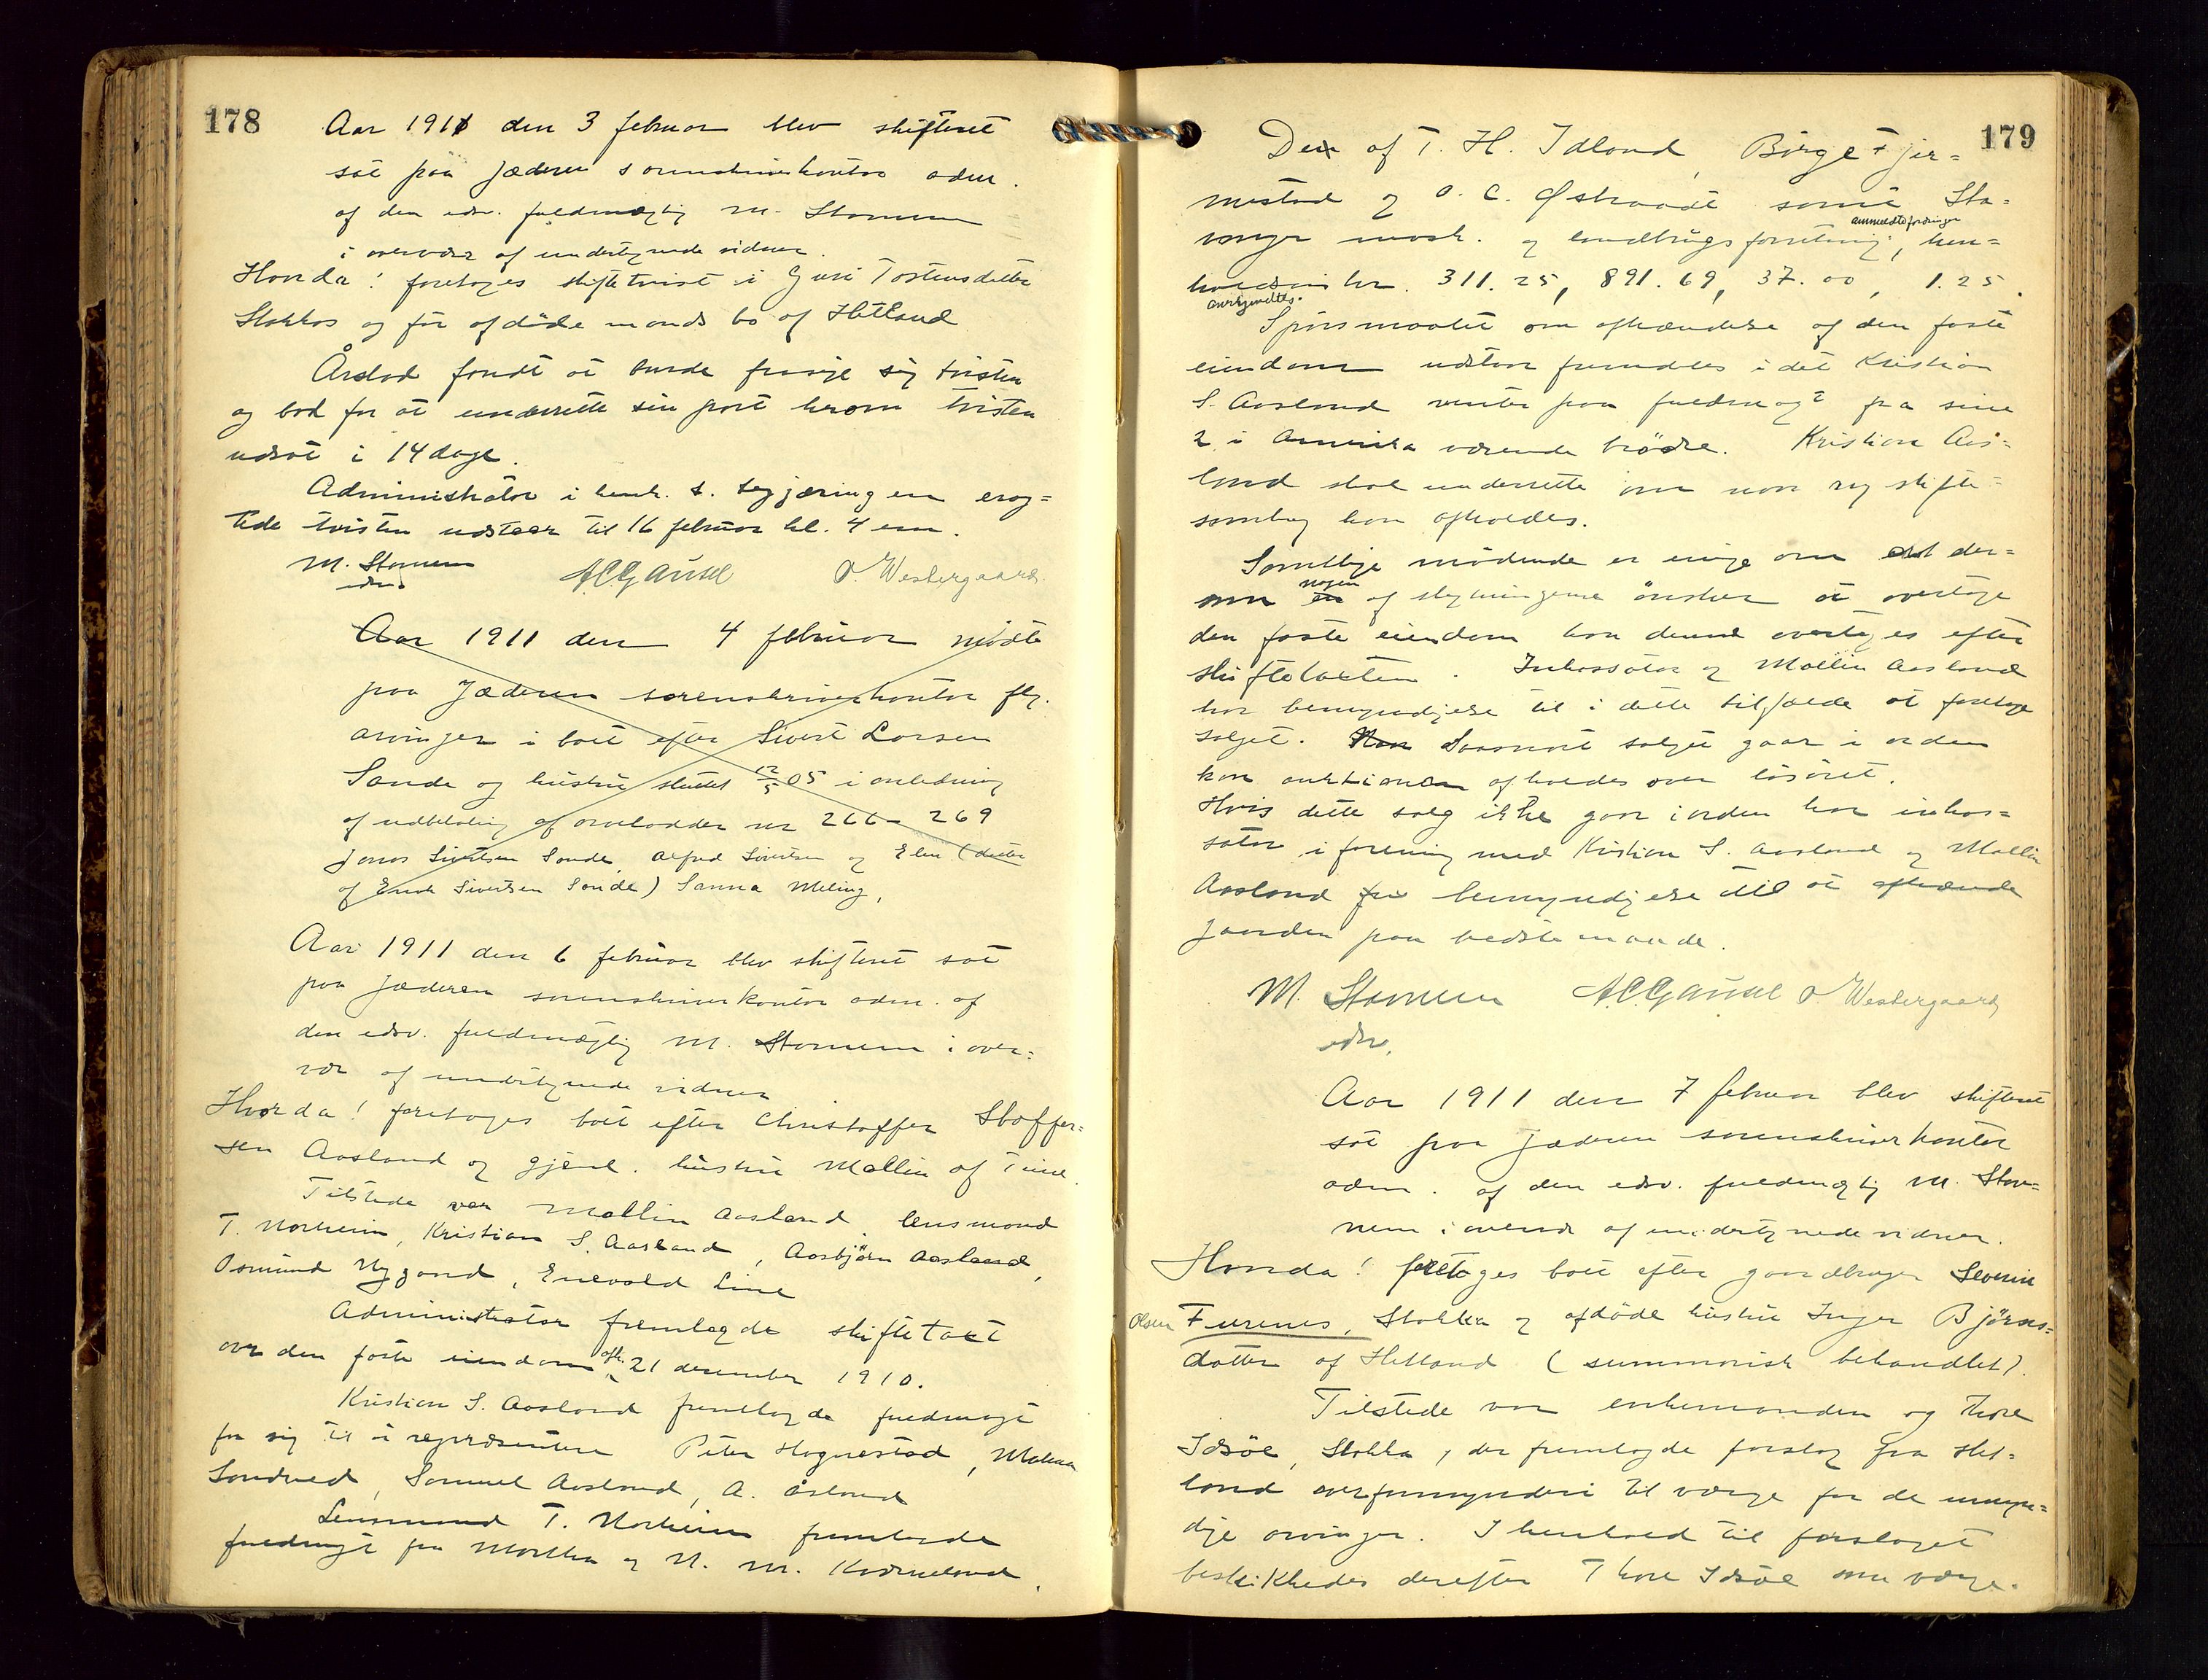 178
Aar 1911 den 3 februar blev skifteret
sat paa Jæderen sorenskriverkontor adm.
af den edsv. fuldmægtig M. Stamnem
i overvær af undertegnede vidner
Hvorda! foretoges skiftetvist i Guri Tostensdatter
Stokkas og før afdøde mands bo af Hetland
Årstad fandt at burde frasige sig tvisten
og bad for at underrette sin part herom tvisten
udsat i 14 dage.
Administrator i henh. t. begjæringen erag-
tede tvisten udstaar til 16 februar kl. 4 em.
M. Stamnem A C Gausel O. Westergaard
edsv.
Aar 1911 den 4 februar mødte
paa Jæderen sorenskriverkontor flg.
arvinger i boet efter Sivert Larsen
Sande og hustru sluttet 12/5 05 i anledning
af udbetaling af arvelodder nr 266 - 269
Jonas Sivertsen Sande, Alfred Sivertsen og Elen (datter
af Enok Sivertsen Sande) Sanna Meling,
Aar 1911 den 6 februar blev skifteret sat
paa Jæderen sorenskriverkontor adm. af
den edsv. fuldmægtig M. Stamnem i over-
vær af undertegnede vidner
Hvorda! foretoges boet efter Christoffer Stoffer-
sen Aasland og gjenl. hustru Mallin af Time.
Tilstede var Mallin Aasland, lensmand
T. Norheim, Kristian S. Aasland, Aasbjørn Aasland,
Osmund Nygaard, Enevald Line
Administrator fremlagde skiftetaxt
over den faste eiendom afh. 21 desember 1910.
Kristian S. Aasland fremlagde fuldmagt
for sig til at repræsentere Peter Hognestad, Malena
Sandved, Samuel Aasland, A. Åsland
Lensmand T. Norheim fremlagde
fuldmagt fra Martha og N. M. Kværneland.
179
Den af T. H. Idland, Børge Fjer-
mestad og O. C. Østraadt samt Sta-
vanger mask. og landbrugsforretning, anmeldte fordringer hen-
holdsvis kr. 311.25, 891.69, 37.00, 1.25.
anerkjendtes.
Spørsmaalet om afhændelse af den faste
eiendom udstaar fremdeles idet Kristian
S. Aasland venter paa fuldmagt fra sine
2 i Amerika værende brødre. Kristian Aas-
land skal underrette om naar ny skifte-
samling kan afholdes.
Samtlige mødende er enige om at der-
som en nogen af slegtningerne ønsker at overtage
den faste eiendom kan denne overtages efter
skiftetaxten. Inkassator og Mallin Aasland
har bemyndigelse til i dette tilfælde at foretage
salget. Naar Saasnart salget gaar i orden
kan auktionen afholdes over løsøret.
Hvis dette salg ikke gaar i orden har inkas-
sator i forening med Kristian S. Aasland og Mallin
Aasland fri bemyndigelse til at afhænde
gaarden paa bedste maade.
M. Stamnem A C Gausel O Westergaard
edsv.
Aar 1911 den 7 februar blev skifteret
sat paa Jæderen sorenskriverkontor
adm. af den edsv. fuldmægtig M. Stam-
nem i overvær af undertegnede vidner.
Hvorda! foretoges boet efter gaardbruger Severin
Olsen Furenes, Stokka og afdøde hustru Inger Bjørns-
datter af Hetland (summarisk behandlet).
Tilstede var enkemanden og Thore
Idsøe, Stokka, der fremlagde forslag fra Het-
land overformynderi til værge for de umyn-
dige arvinger. I henhold til forslaget
beskikkedes derefter Thore Idsøe som værge.